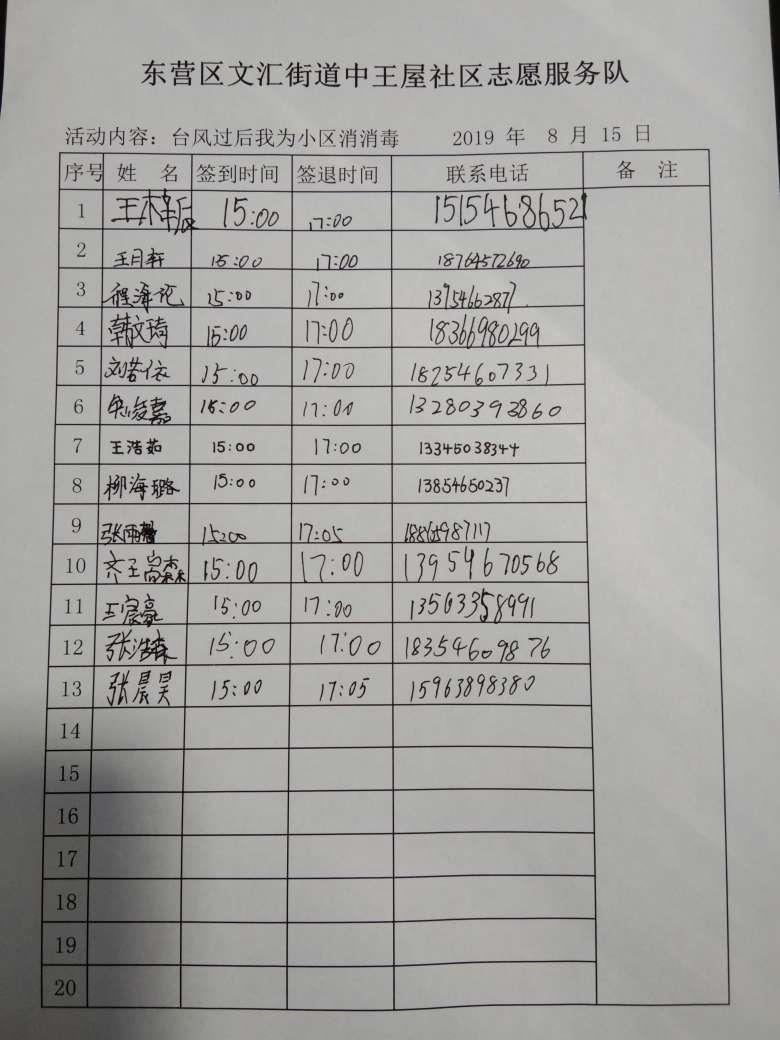 东营区文汇街道中王屋社区志愿服务队
活动内容：台风过后我为小区消消毒 2019 年 8 月 15 日
序号 姓 名 签到时间 签退时间 联系电话 备 注
1 15:00 17:00 15154686521
2 王月轩 15:00 17:00 18764572690
3 程海 15:00 17:00 13954662877
4 韩文琦 15:00 17:00 18366980299
5 刘若依 15:00 17:00 18254607331
6 15:00 17:00 13280393860
7 王浩茹 15:00 17:00 13345038344
8 柳海璐 15:00 17:00 13854650237
9 张雨馨 15:00 17:05
10 齐王尚森 15:00 17:00 13954670568
11 王宸豪 15:00 17:00 13563358991
12 张浩森 15:00 17:00 18354609876
13 张晨昊 15:00 17:05 15963898380
14
15
16
17
18
19
20